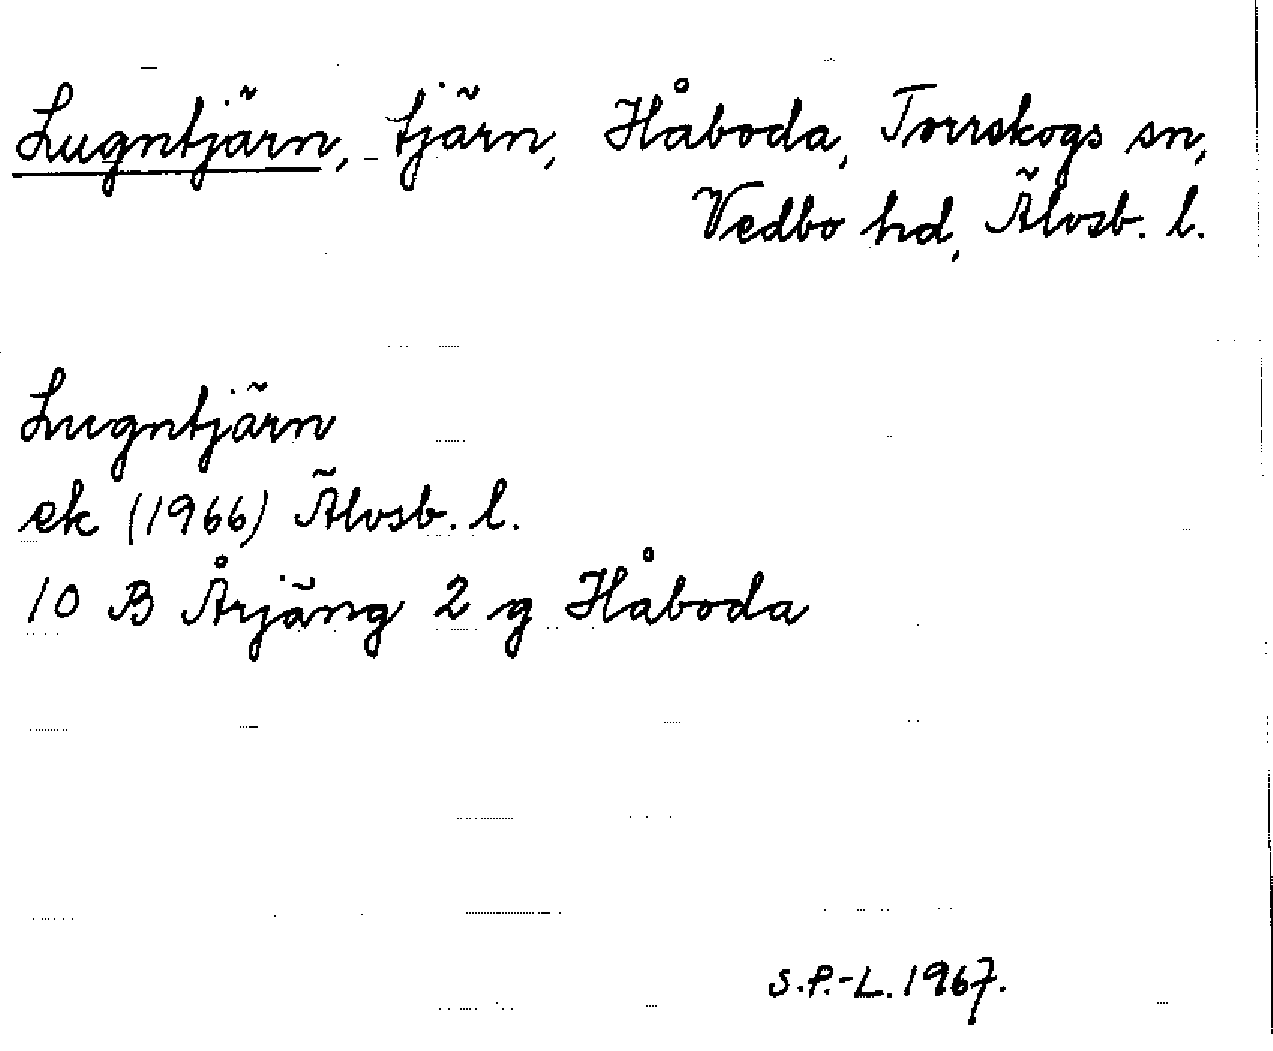 Lugntjärn, tjärn, Håboda, Torrskogs sn,
Vedbo hd, Älvsb. l.
Lugntjärn
ek (1966) Älvsb. l.
10 B Årjäng 2 g Håboda
S.P.-L. 1967.